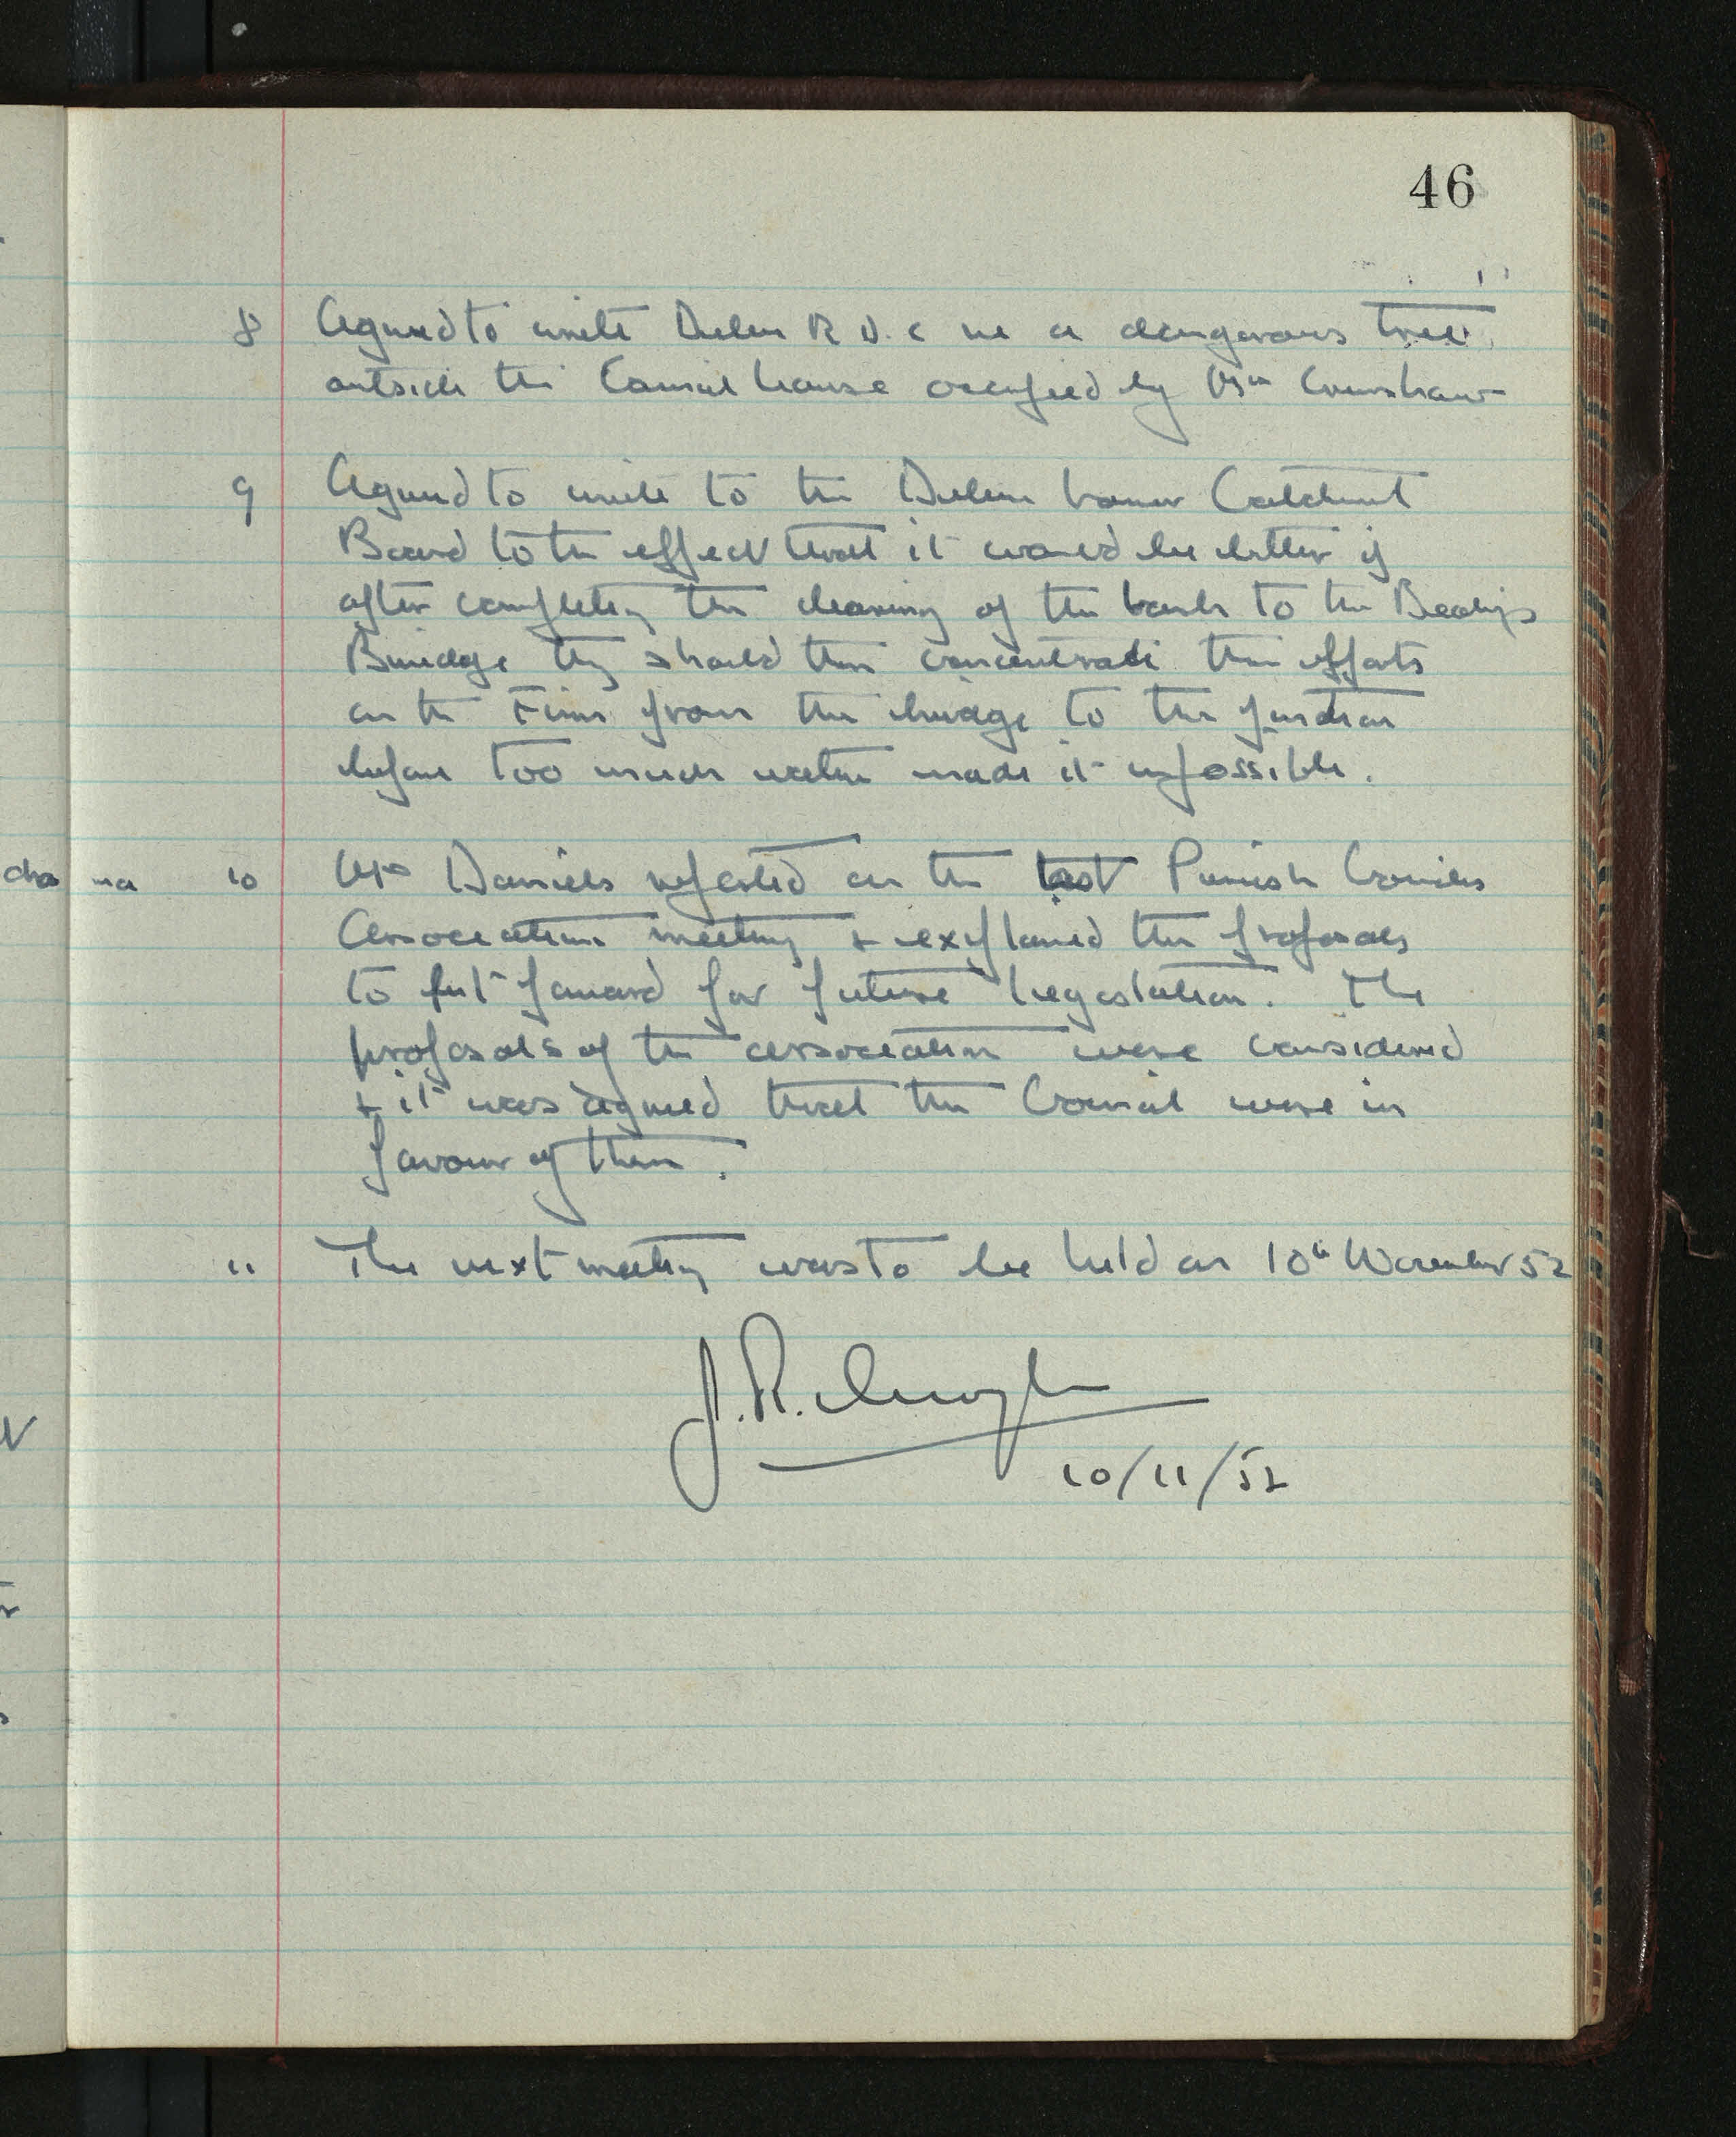 46
8 Agreed to write Deben R D.C re a dangerous tree
outside the Council house occupied by Mrs Crenshaw
9 Agreed to write to the Deben Catchment
Board to the effect that it would be better if
after completing the cleaning of the bank to the
Bridge they should then concentrate their efforts
on the from the bridge to the junction
before too much water made it impossible.
10 Mrs Daniels reported on the last Parish Councils
Association meeting + explained the proposals
to put forward for future legislation. The
proposals of the association were considered
+ it was agreed that the Council were in
favour of them.
11 The next meeting was to be held on 10th November 52
J.R.
10/11/52